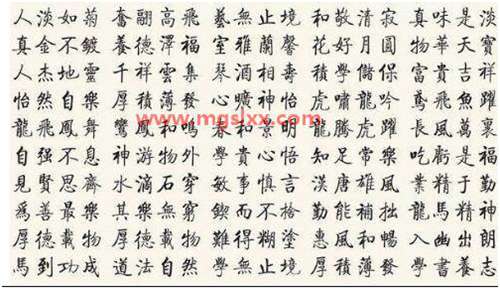 人淡如菊 奮翮高飛 藝無止境 和敬清寂 真味是淡
真金不鍍 養德澤福 室雅蘭馨 花好月圓 物華天寶
人杰地靈 千祥雲集 琴酒相壽 積學儲保 富貴吉祥
怡然自樂 厚積薄發 心曠神怡 虎嘯龍吟 鳶飛魚躍
www.mgslxx.com
龍飛鳳舞 鸞鳳和鳴 和景明 龍騰虎躍 長風萬裏
自强不息 神游物外 學貴心悟 知足常樂 吃虧是福
見賢思齊 水滴石穿 敏事慎言 漢唐雄風 業精于勤
爲善最樂 其樂無窮 鍥而不捨 勤能補拙 龍馬精神
厚德載物 厚德載物 難得糊塗 惠風和暢 入幽出朗
馬到功成 道法自然 學無止境 厚積薄發 學書養志